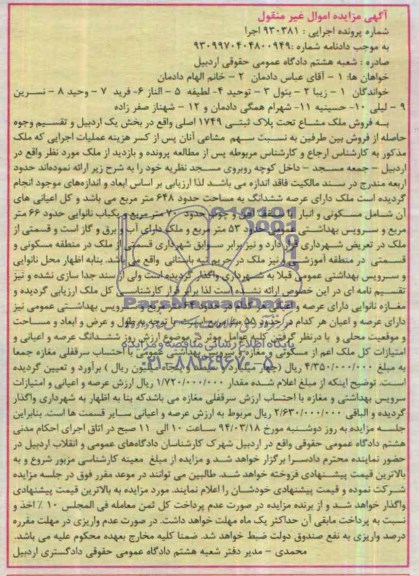 آگهی مزایده اموال غیر منقول
شماره پرونده اجرایی : ۹۳۰۳۸۱ اجرا
به موجب دادنامه شماره :۹۳۰۹۹۷۰۴۰۴۸۰۰۹۴۹
صادره : شعبه هشتم دادگاه عمومی حقوقی اردبیل
خواهان ها: ۱ - آقای عباس دادمان ۲ - خانم الهام دادمان
خواندگان ۱ - زیبا ۲ - بتول ۳ - توحید ۴- لطیفه ۵ - الناز ۶- فرید ۷ - وحید ۸ - نسرین
۹ - لیلی ۱۰- حسینیه ۱۱- شهرام همگی دادمان و ۱۲ - شهناز صفر زاده
به فروش ملک مشاع تحت پلاک ثبتی ۱۷۴۹ اصلی واقع در بخش یک اردبیل و تقسیم وجوه
حاصله از فروش بین طرفین به نسبت سهم مشاعی آنان پس از کسر هزینه عملیات اجرایی که ملک
مذکور به کارشناس ارجاع و کارشناس مربوطه پس از مطالعه پرونده و بازدید از ملک مورد نظر واقع در
اردبیل - جمعه مسجد - داخل کوچه روبروی مسجد نظریه خود را به شرح زیر ارائه نموده‌اند حدود
اربعه مندرج در سند مالکیت فاقد اندازه می باشد. لذا ارزیابی بر اساس ابعاد و اندازه‌های موجود انجام
گردیده است ملک دارای عرصه ششدانگ به مساحت حدود ۶۴۸ متر مربع می باشد و کل اعیانی های
آن شامل مسکونی و انبار حدود متر مربع و یکباب نانوایی حدود ۶۶ متر
مربع و سرویس بهداشتی حدود ۵۳ متر مربع و ملک دارای آب و برق و گاز است و قسمتی از
ملک در تعریض شهرداری قرار دارد و نیز برابر سوابق شهرداری قسمتی از ملک در منطقه مسکونی و
قسمتی در منطقه آموزشی و نیز ملک در حریم تپه باستانی واقع می باشد. بنابه اظهار محل نانوایی
و سرویس بهداشتی عمومی قبلا به شهرداری واگذار گردیده است ولی از سند جدا سازی نشده و نیز
تقسیم نامه ای در این خصوص ارائه نشده است لذا برابر قرار کارشناسی کل ملک ارزیابی گردیده و
مغازه نانوایی دارای عرصه و سرویس بهداشتی عمومی نیز
دارای عرصه و اعیان هر کدام در حدود متر مربع است با توجه به طول و عرض و ابعاد و مساحت
و موقعیت محلی و با درنظر گرفتن موضوع ارزش ششدانگ عرصه و اعیانی و
امتیازات کل ملک اعم از مسکونی و مغازه و سرویس بهداشتی عمومی با احتساب سرقفلی مغازه جمعا
به مبلغ ۴/۳۵۰/۰۰۰/۰۰۰ ریال ( میلیون ریال ) برآورد و تعیین گردیده
است. توضیح اینکه از مبلغ اعلام شده مقدار ۱/۷۲۰/۰۰۰/۰۰۰ ریال ارزش عرصه و اعیانی و امتیازات
سرویس بهداشتی و مغازه با احتساب ارزش سرقفلی مغازه می باشد که بنا به اظهار به شهرداری واگذار
گردیده و الباقی ۲/۶۳۰/۰۰۰/۰۰۰ ریال مربوط به ارزش عرصه و اعیانی سایر قسمت ها است. بنابراین
جلسه مزایده به روز دوشنبه مورخ ۹۴/۰۳/۱۸ ساعت ۱۰ الی ۱۱ صبح در اتاق اجرای احکام مدنی
هشتم دادگاه عمومی حقوقی واقع در اردبیل شهرک کارشناسان دادگاههای عمومی و انقلاب اردبیل در
حضور نماینده محترم دادسرا برگزار خواهد شد و مزایده از مبلغ معینه کارشناسی مزبور شروع و به
بالاترین قیمت پیشنهادی فروخته خواهد شد. طالبین می توانند در موعد مقرر فوق در جلسه مزایده
شرکت نموده و قیمت پیشنهادی خودشان را اعلام نمایند. مورد مزایده به بالاترین قیمت پیشنهادی
واگذار خواهد شد و از برنده مزایده در صورت عدم پرداخت کل ثمن معامله فی المجلس ۱۰٪ اخذ و
نسبت به پرداخت مابقی آن حداکثر یک ماه مهلت خواهد داشت. در صورت عدم واریزی در مهلت مقرره
درصد واریزی به نفع صندوق دولت ضبط خواهد شد. ضمنا کلیه مخارج بعهده محکوم علیه می باشد.
محمدی - مدیر دفتر شعبه هشتم دادگاه عمومی حقوقی دادگستری اردبیل
ParsNamadData
پایگاه اطلاع رسانی مناقصه و مزایده
۰۲۱-۸۸۳۴۹۶۷۰-۵